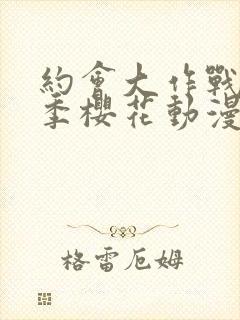 約會大作戰
季櫻花動漫
格雷厄姆